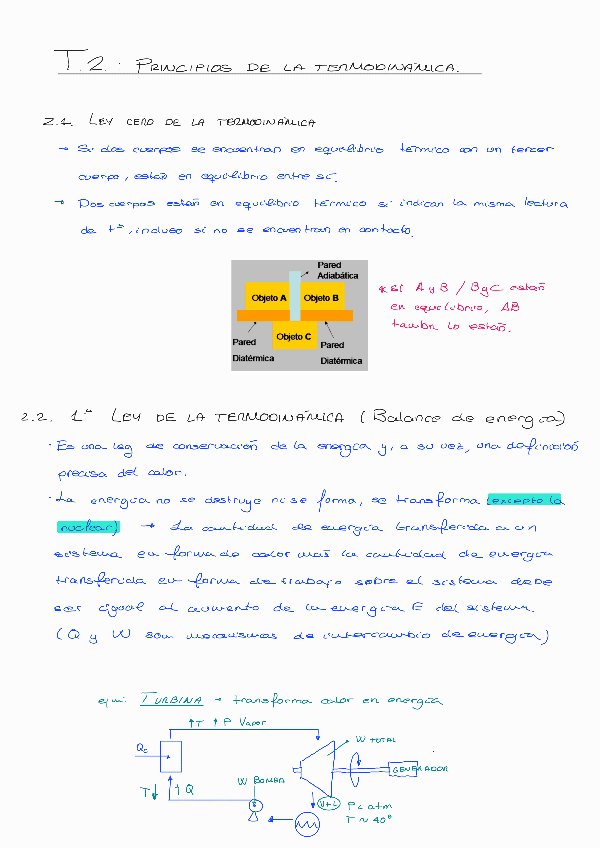 T.2. PRINCIPIOS DE LA TERMODINÁMICA.
2.1. LEY CERO DE LA TERMODINÁMICA
→ Si dos cuerpos se encuentran en equilibrio térmico con un tercer
cuerpo, están en equilibrio entre sí.
→ Dos cuerpos están en equilibrio térmico si indican la misma lectura
de tª, incluso si no se encuentran en contacto.
Pared
Adiabática
Objeto A
Objeto B
Objeto C
Pared
Diatérmica
Pared
Diatérmica
* Si A y B / B y C están
en equilibrio, AB
tambn lo están.
2.2. 1ª LEY DE LA TERMODINÁMICA (Balance de energía)
· Es una ley de conservación de la energía y, a su vez, una definición
precisa del calor.
· La energía no se destruye ni se forma, se transforma (excepto la
nuclear) → La cantidad de energía transferida a un
sistema en forma de calor más la cantidad de energía
transferida en forma de trabajo sobre el sistema debe
ser igual al aumento de la energía E del sistema.
(Q y W son mecanismos de intercambio de energía)
ejm: TURBINA → transforma calor en energía
↑T ↑P Vapor
W TOTAL
Qc
GENERADOR
T↓ ↑Q
W BOMBA
V+L
P< atm
T ~ 40º